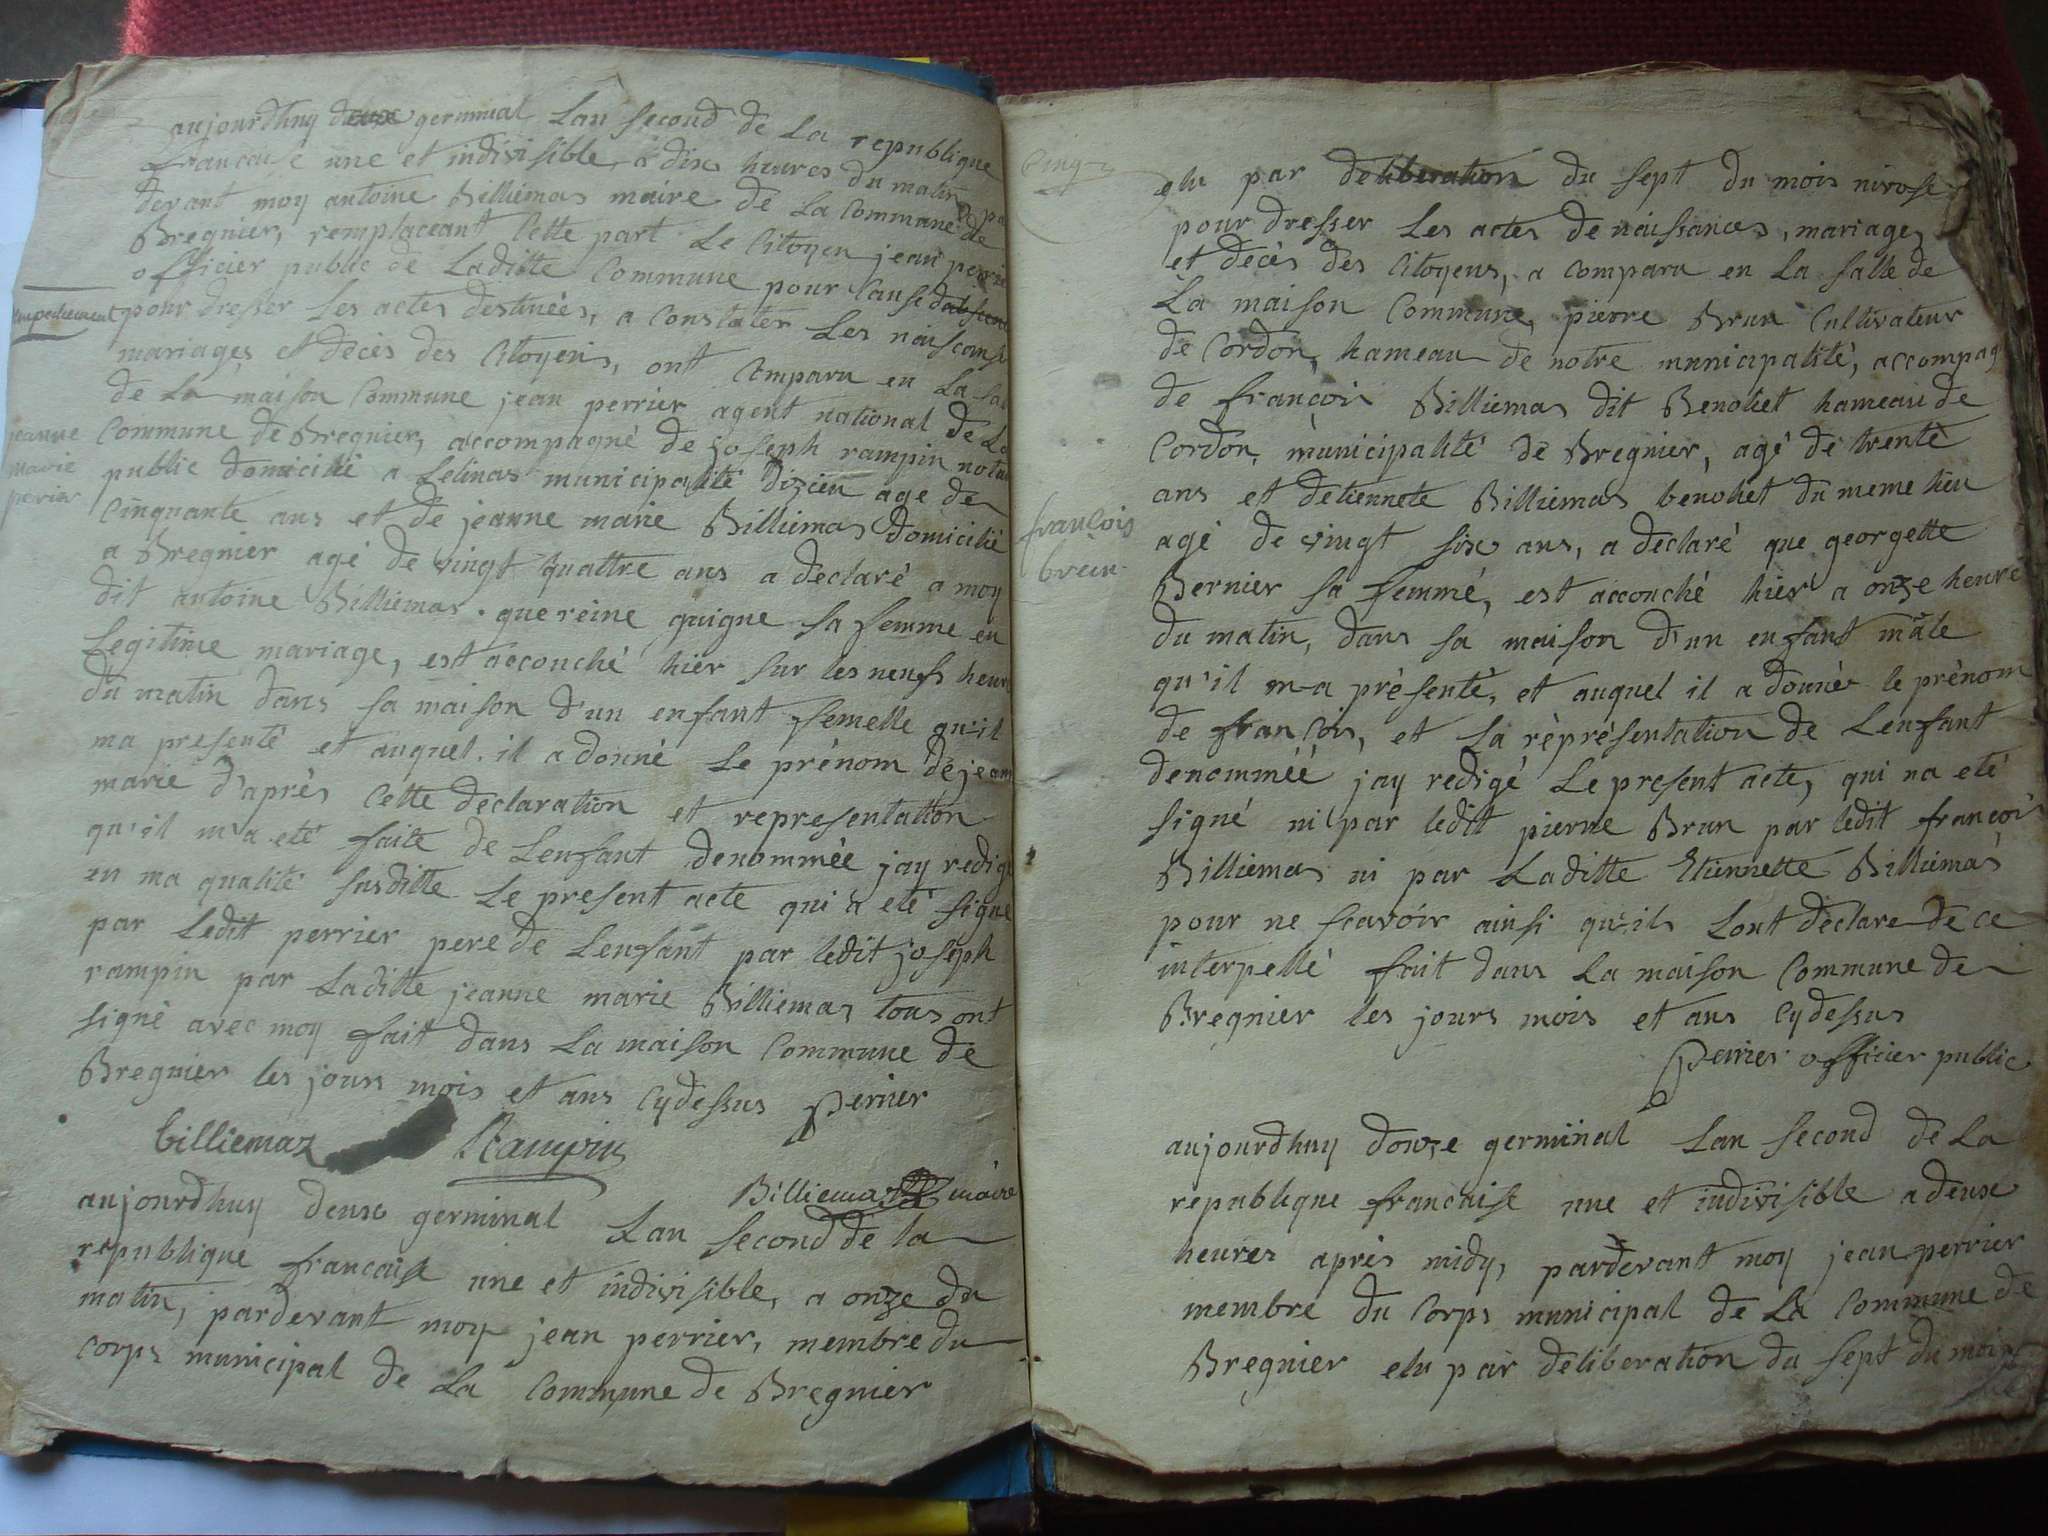 aujourdhuy deux germinal Lan second de La republique
francaise une et indivisible, a dix heures du matin
devant moy antoine Billiemas maire de La Commune de
Bregnier, remplaceant Cette part Le Citoyen jean perrier
officier public de Laditte Commune pour Cause dabsence
empechement
pour dresser Les actes destinées, a Constater Les naiscances
mariages et decès des Citoyens, ont Comparu en La sal
de La maison Commune jean perrier agent national de La
jeanne
marie
perier
Commune de Bregnier, accompagné de joseph rampin nota
public domicilié a Lelinas municipalité dizieu age de
Cinquante ans et de jeanne marie Billiemas domicilié
a Bregnier agé de vingt quattre ans a declaré a moy
dit antoine Billiemas . que reine guigue sa femme en
Legitime mariage, est accouché hier sur les neufs heure
du matin dans sa maison d'un enfant femelle qu'il
ma presenté et auquel . il a donné Le prénom de jeanne
marie d'après Cette declaration et representation
qu'il m'a eté faite de Lenfant denommée jay redigé
en ma qualité susditte Le present acte qui a eté signé
par Ledit perrier pere de Lenfant par ledit joseph
rampin par Laditte jeanne marie Billiemas tous ont
signé avec moy fait dans La maison Commune de
Bregnier les jours mois et ans Cydessus perrier
billiemaz Rampin
Billiemaz maire
aujourdhuy deux germinal Lan second de la
republique francaise une et indivisible, a onze du
matin, pardevant moy jean perrier, membre du
Corps municipal de La Commune de Bregnier
Cinq
elu par deliberation du sept du mois nivose
pour dresser Les actes de naissances, mariages
et decès des Citoyens, a Comparu en La salle de
La maison Commune, pierre Brun Cultivateur
de Cordon, hameau de notre municipalité, accompag
de françois Billiemas dit Benoliet hameau de
Cordon, municipalité de Bregnier, agé de trente
ans et detiennete Billiemas benoliet du meme lieu
francois
brun
agé de vingt six ans, a declaré que georgette
Bernier sa femme, est accouché hier a onze heure
du matin, dans sa maison d'un enfant mâle
qu'il m-a présenté, et auquel il a donnée le prénom
de francois, et sa réprésentation de Lenfant
denomméé jay redigé Le present acte, qui na eté
signé ni par ledit pierre Brun par ledit françois
Billiemas ni par Laditte Etiennette Billiemas
pour ne scavoir ainsi qu'ils Lont declare de ce
interpellé fait dans La maison Commune de
Bregnier les jours mois et ans Cydessus
Perrier officier public
aujourdhuy douze germinal Lan second de La
republique francaise une et indivisible a deux
heures après midy, pardevant moy jean perrier
membre du Corps municipal de La Commune de
Bregnier elu par deliberation du sept du mois